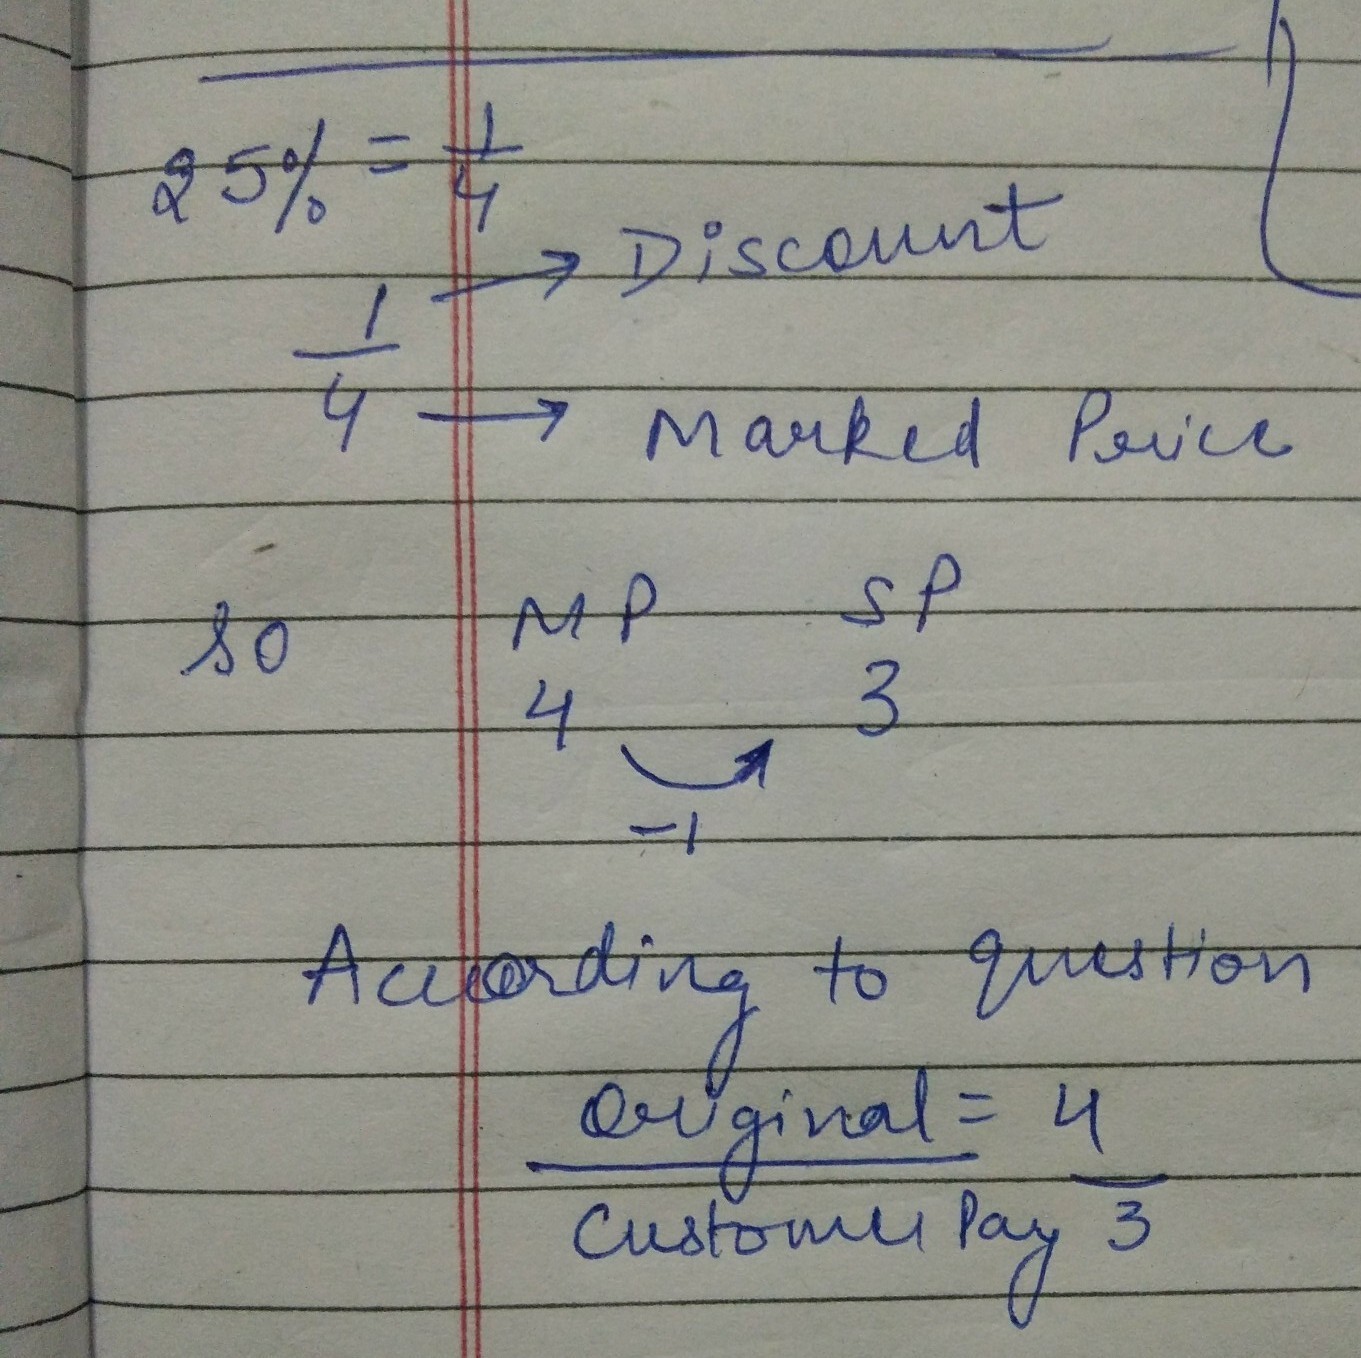 25% = 1/4
1 → Discount
4 → Marked Price
so MP SP
4 3
-1
According to question
Original = 4
Customer Pay 3